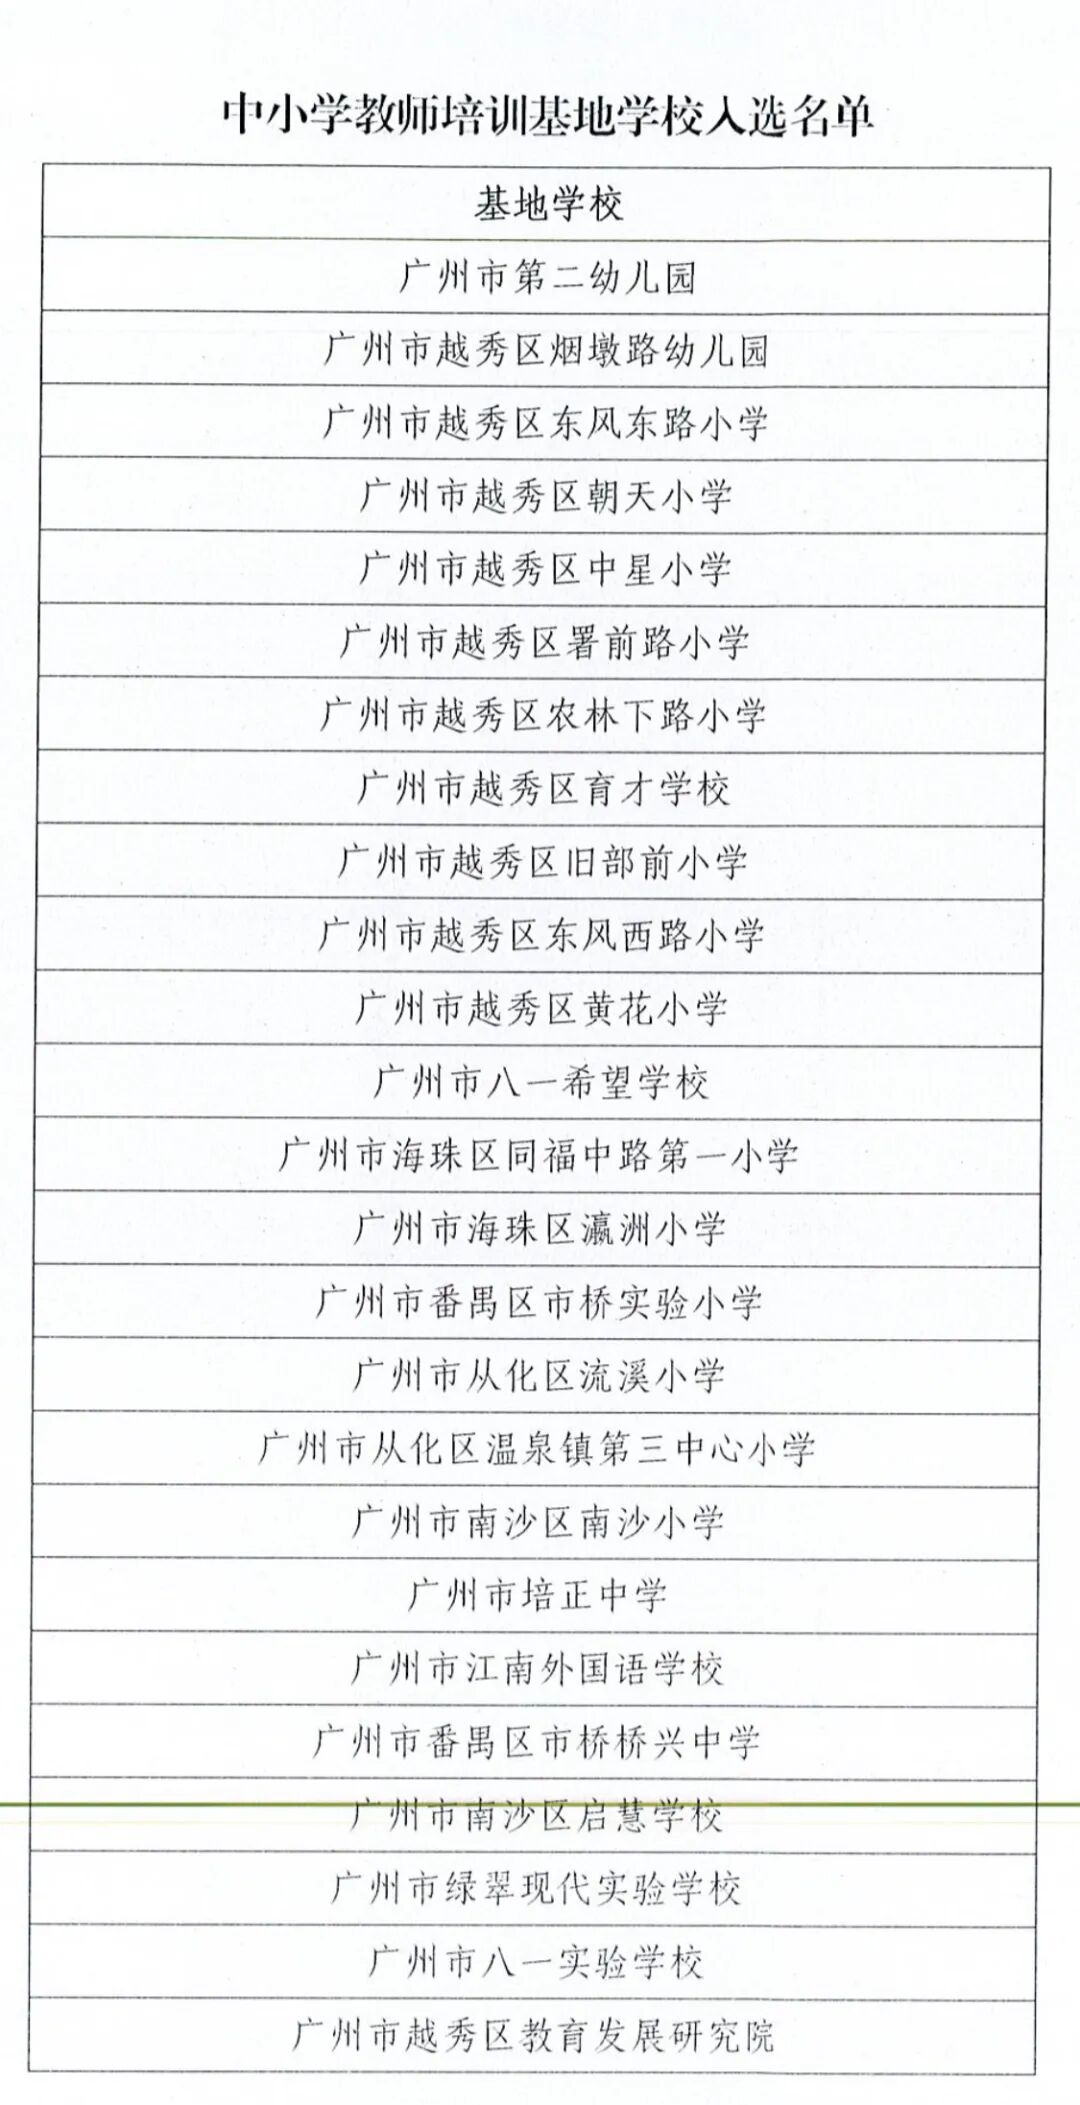 中小学教师培训基地学校入选名单
基地学校
广州市第二幼儿园
广州市越秀区烟墩路幼儿园
广州市越秀区东风东路小学
广州市越秀区朝天小学
广州市越秀区中星小学
广州市越秀区署前路小学
广州市越秀区农林下路小学
广州市越秀区育才学校
广州市越秀区旧部前小学
广州市越秀区东风西路小学
广州市越秀区黄花小学
广州市八一希望学校
广州市海珠区同福中路第一小学
广州市海珠区瀛洲小学
广州市番禺区市桥实验小学
广州市从化区流溪小学
广州市从化区温泉镇第三中心小学
广州市南沙区南沙小学
广州市培正中学
广州市江南外国语学校
广州市番禺区市桥桥兴中学
广州市南沙区启慧学校
广州市绿翠现代实验学校
广州市八一实验学校
广州市越秀区教育发展研究院